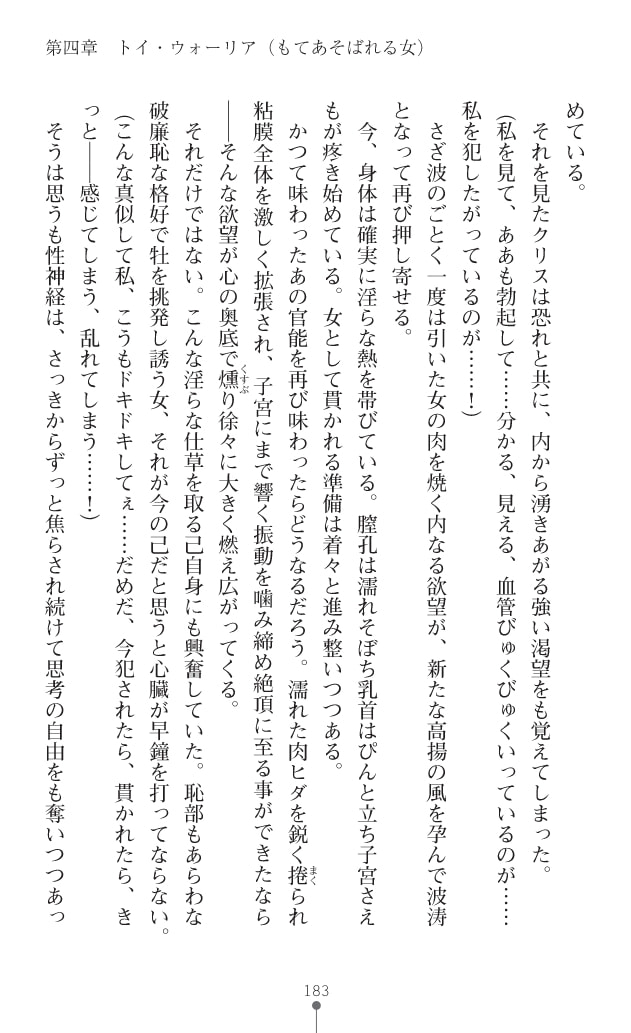 第四章　トイ・ウォーリア（もてあそばれる女）
めている。
　それを見たクリスは恐れと共に、内から湧きあがる強い渇望をも覚えてしまった。
（私を見て、ああも勃起して……分かる、見える、血管びゅくびゅくいっているのが……
私を犯したがっているのが……！）
　さざ波のごとく一度は引いた女の肉を焼く内なる欲望が、新たな高揚の風を孕んで波涛
となって再び押し寄せる。
　今、身体は確実に淫らな熱を帯びている。膣孔は濡れそぼち乳首はぴんと立ち子宮さえ
もが疼き始めている。女として貫かれる準備は着々と進み整いつつある。
　かつて味わったあの官能を再び味わったらどうなるだろう。濡れた肉ヒダを鋭く捲られ
まく
粘膜全体を激しく拡張され、子宮にまで響く振動を噛み締め絶頂に至る事ができたなら
――そんな欲望が心の奥底で燻り徐々に大きく燃え広がってくる。
くすぶ
　それだけではない。こんな淫らな仕草を取る己自身にも興奮していた。恥部もあらわな
破廉恥な格好で牡を挑発し誘う女、それが今の己だと思うと心臓が早鐘を打ってならない。
（こんな真似して私、こうもドキドキしてぇ……だめだ、今犯されたら、貫かれたら、き
っと――感じてしまう、乱れてしまう……！）
　そうは思うも性神経は、さっきからずっと焦らされ続けて思考の自由をも奪いつつあっ
183